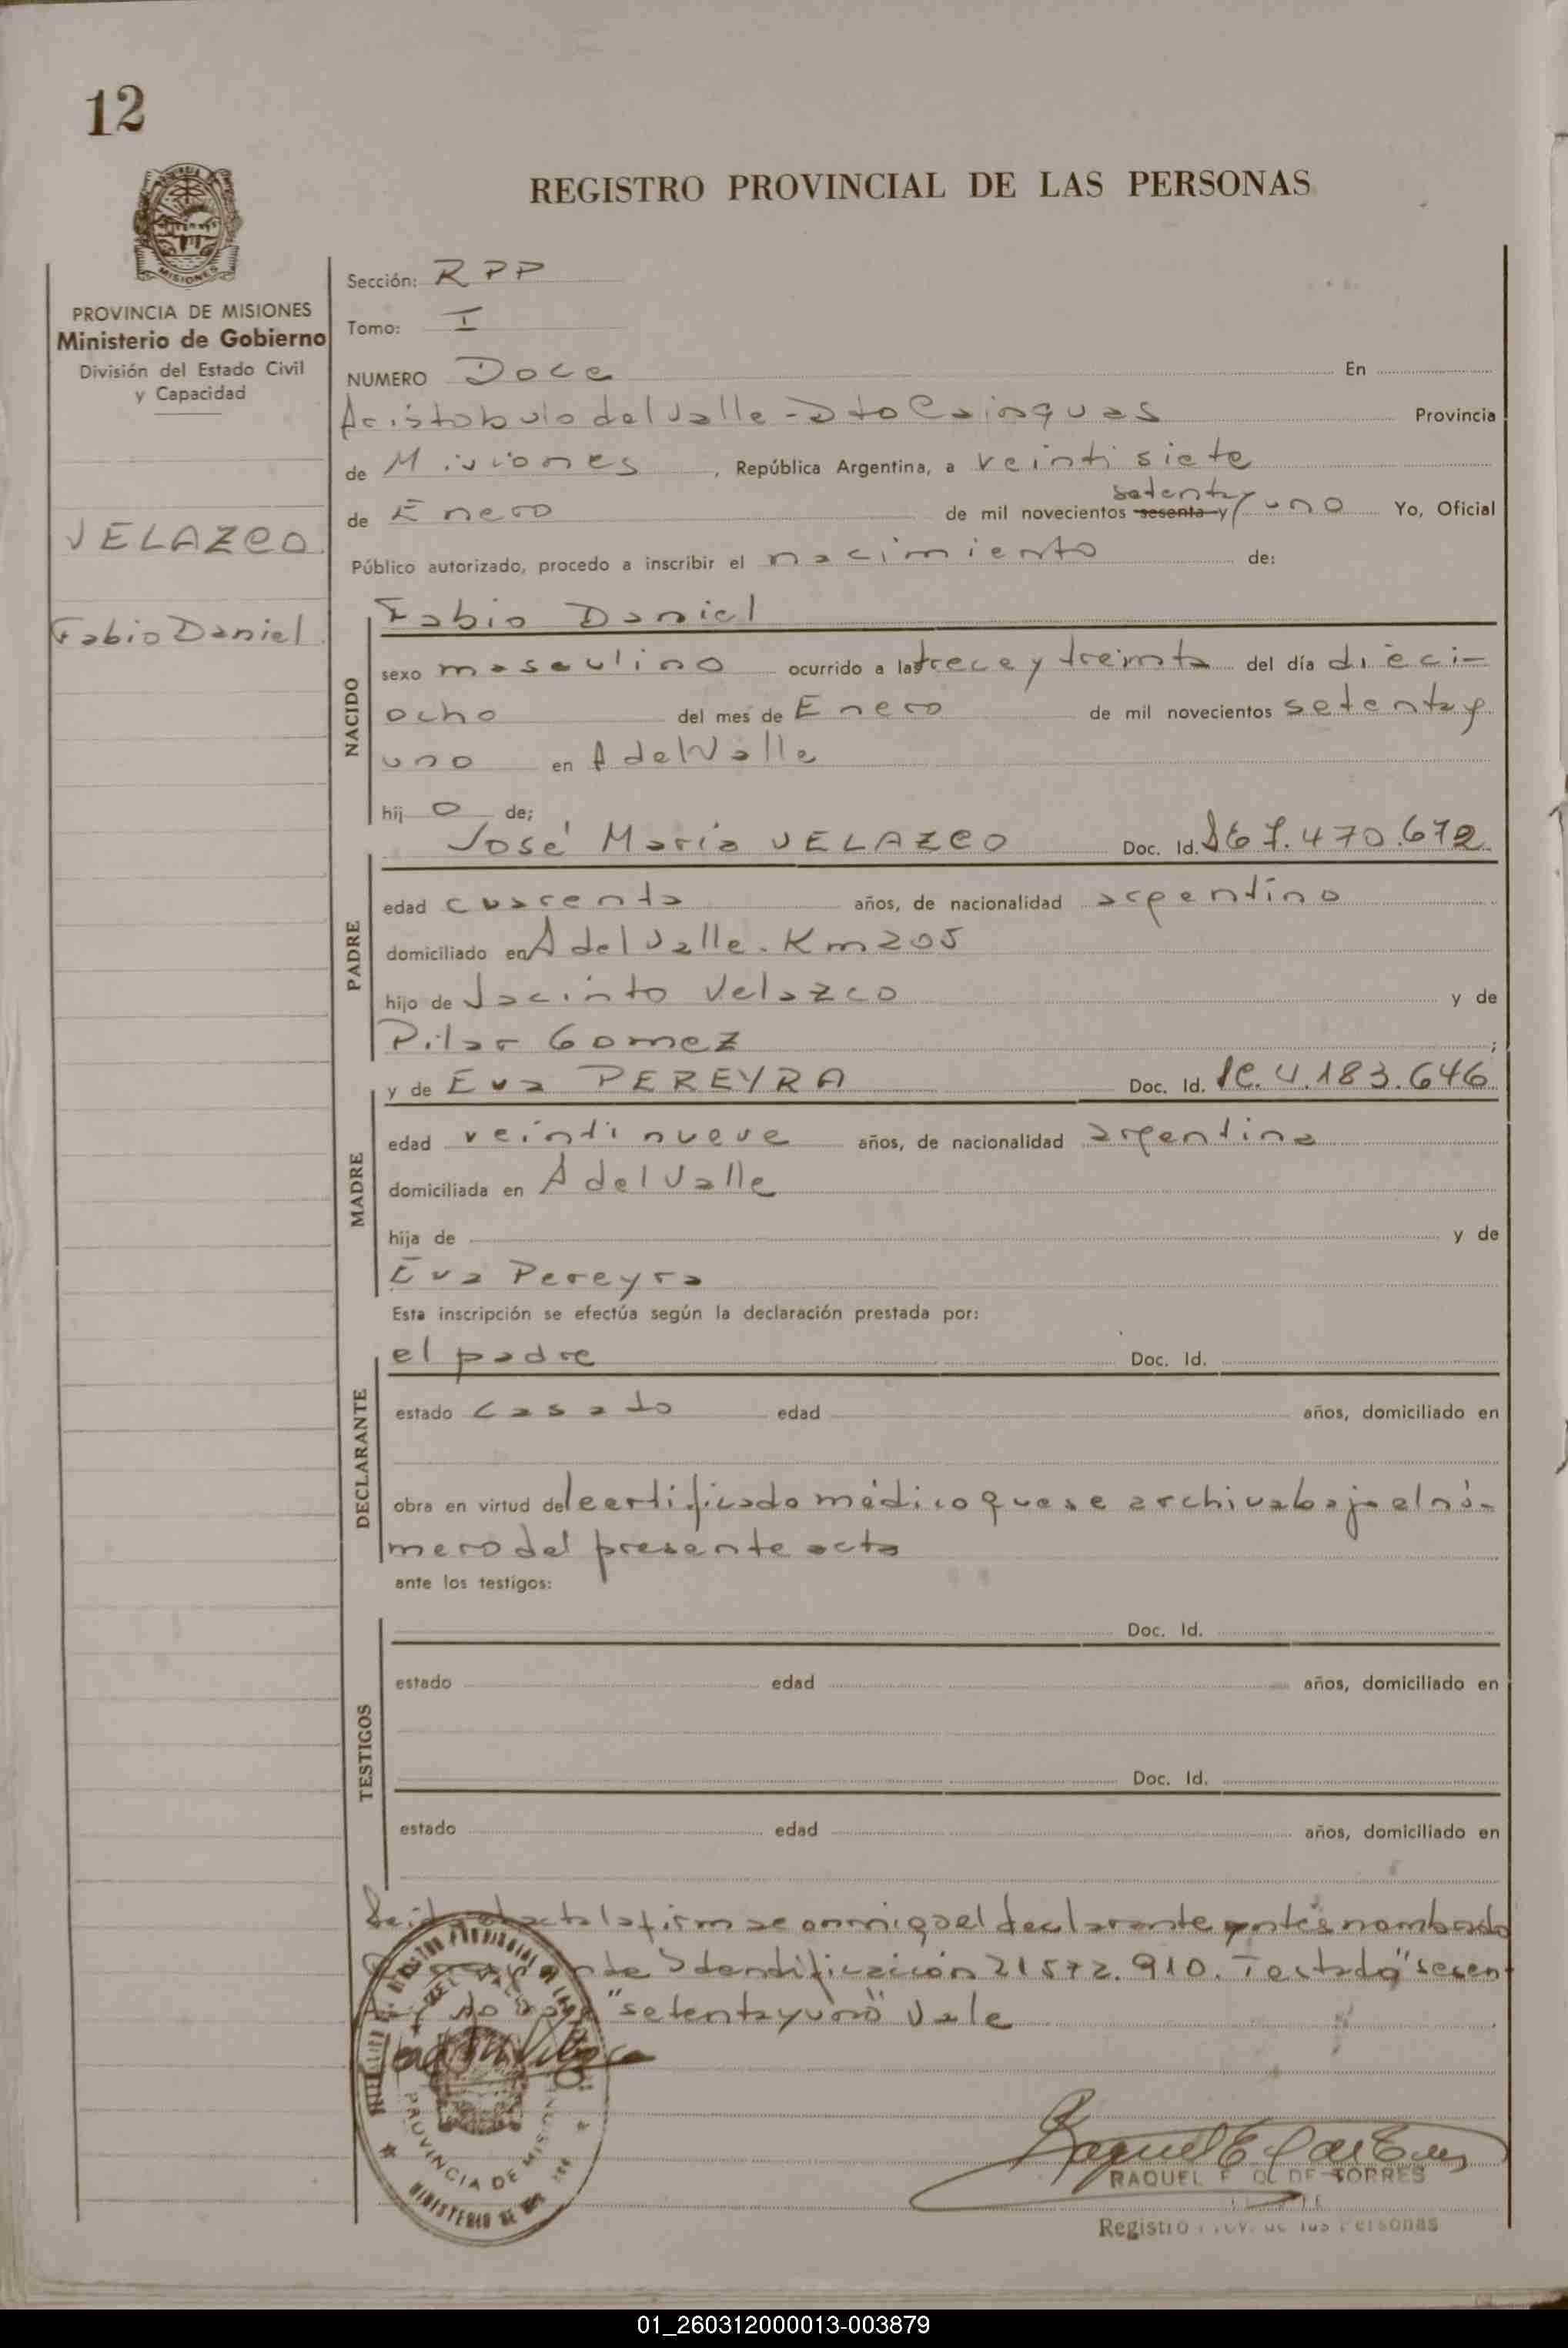 12
REGISTRO PROVINCIAL DE LAS PERSONAS
MISIONES
PROVINCIA DE MISIONES
Ministerio de Gobierno
División del Estado Civil
y Capacidad
VELAZCO
Fabio Daniel
Sección: RPP
Tomo: I
NUMERO Doce En
Aristobulo del Valle - Dto Cainguas Provincia
de Misiones, República Argentina, a veintisiete
setenta y
de Enero de mil novecientos sesenta y uno Yo, Oficial
Público autorizado, procedo a inscribir el nacimiento de:
NACIDO
Fabio Daniel
sexo masculino ocurrido a las trece y treinta del día dieci-
ocho del mes de Enero de mil novecientos setenta y
uno en A del Valle
hijo de;
PADRE
José María VELAZCO Doc. Id. 7.470.672
edad cuarenta años, de nacionalidad argentino
domiciliado en A del Valle. Km 205
hijo de Jacinto Velazco y de
Pilar Gomez ;
MADRE
y de Eva PEREYRA Doc. Id. 4.183.646
edad veintinueve años, de nacionalidad argentina
domiciliada en A del Valle
hija de y de
Eva Pereyra
Esta inscripción se efectúa según la declaración prestada por:
DECLARANTE
el padre Doc. Id.
estado casado edad años, domiciliado en
obra en virtud del certificado médico que se archiva bajo el nú-
mero del presente acta
ante los testigos:
TESTIGOS
Doc. Id.
estado edad años, domiciliado en
Doc. Id.
estado edad años, domiciliado en
acta la firma conmigo el declarante antes nombrado
de Identificación 21572.910. Testado "sesen
"setenta y uno" Vale
PROVINCIA DE MISIONES
MINISTERIO DE
RAQUEL E. O. DE TORRES
Registro Prov. de las Personas
01_260312000013-003879